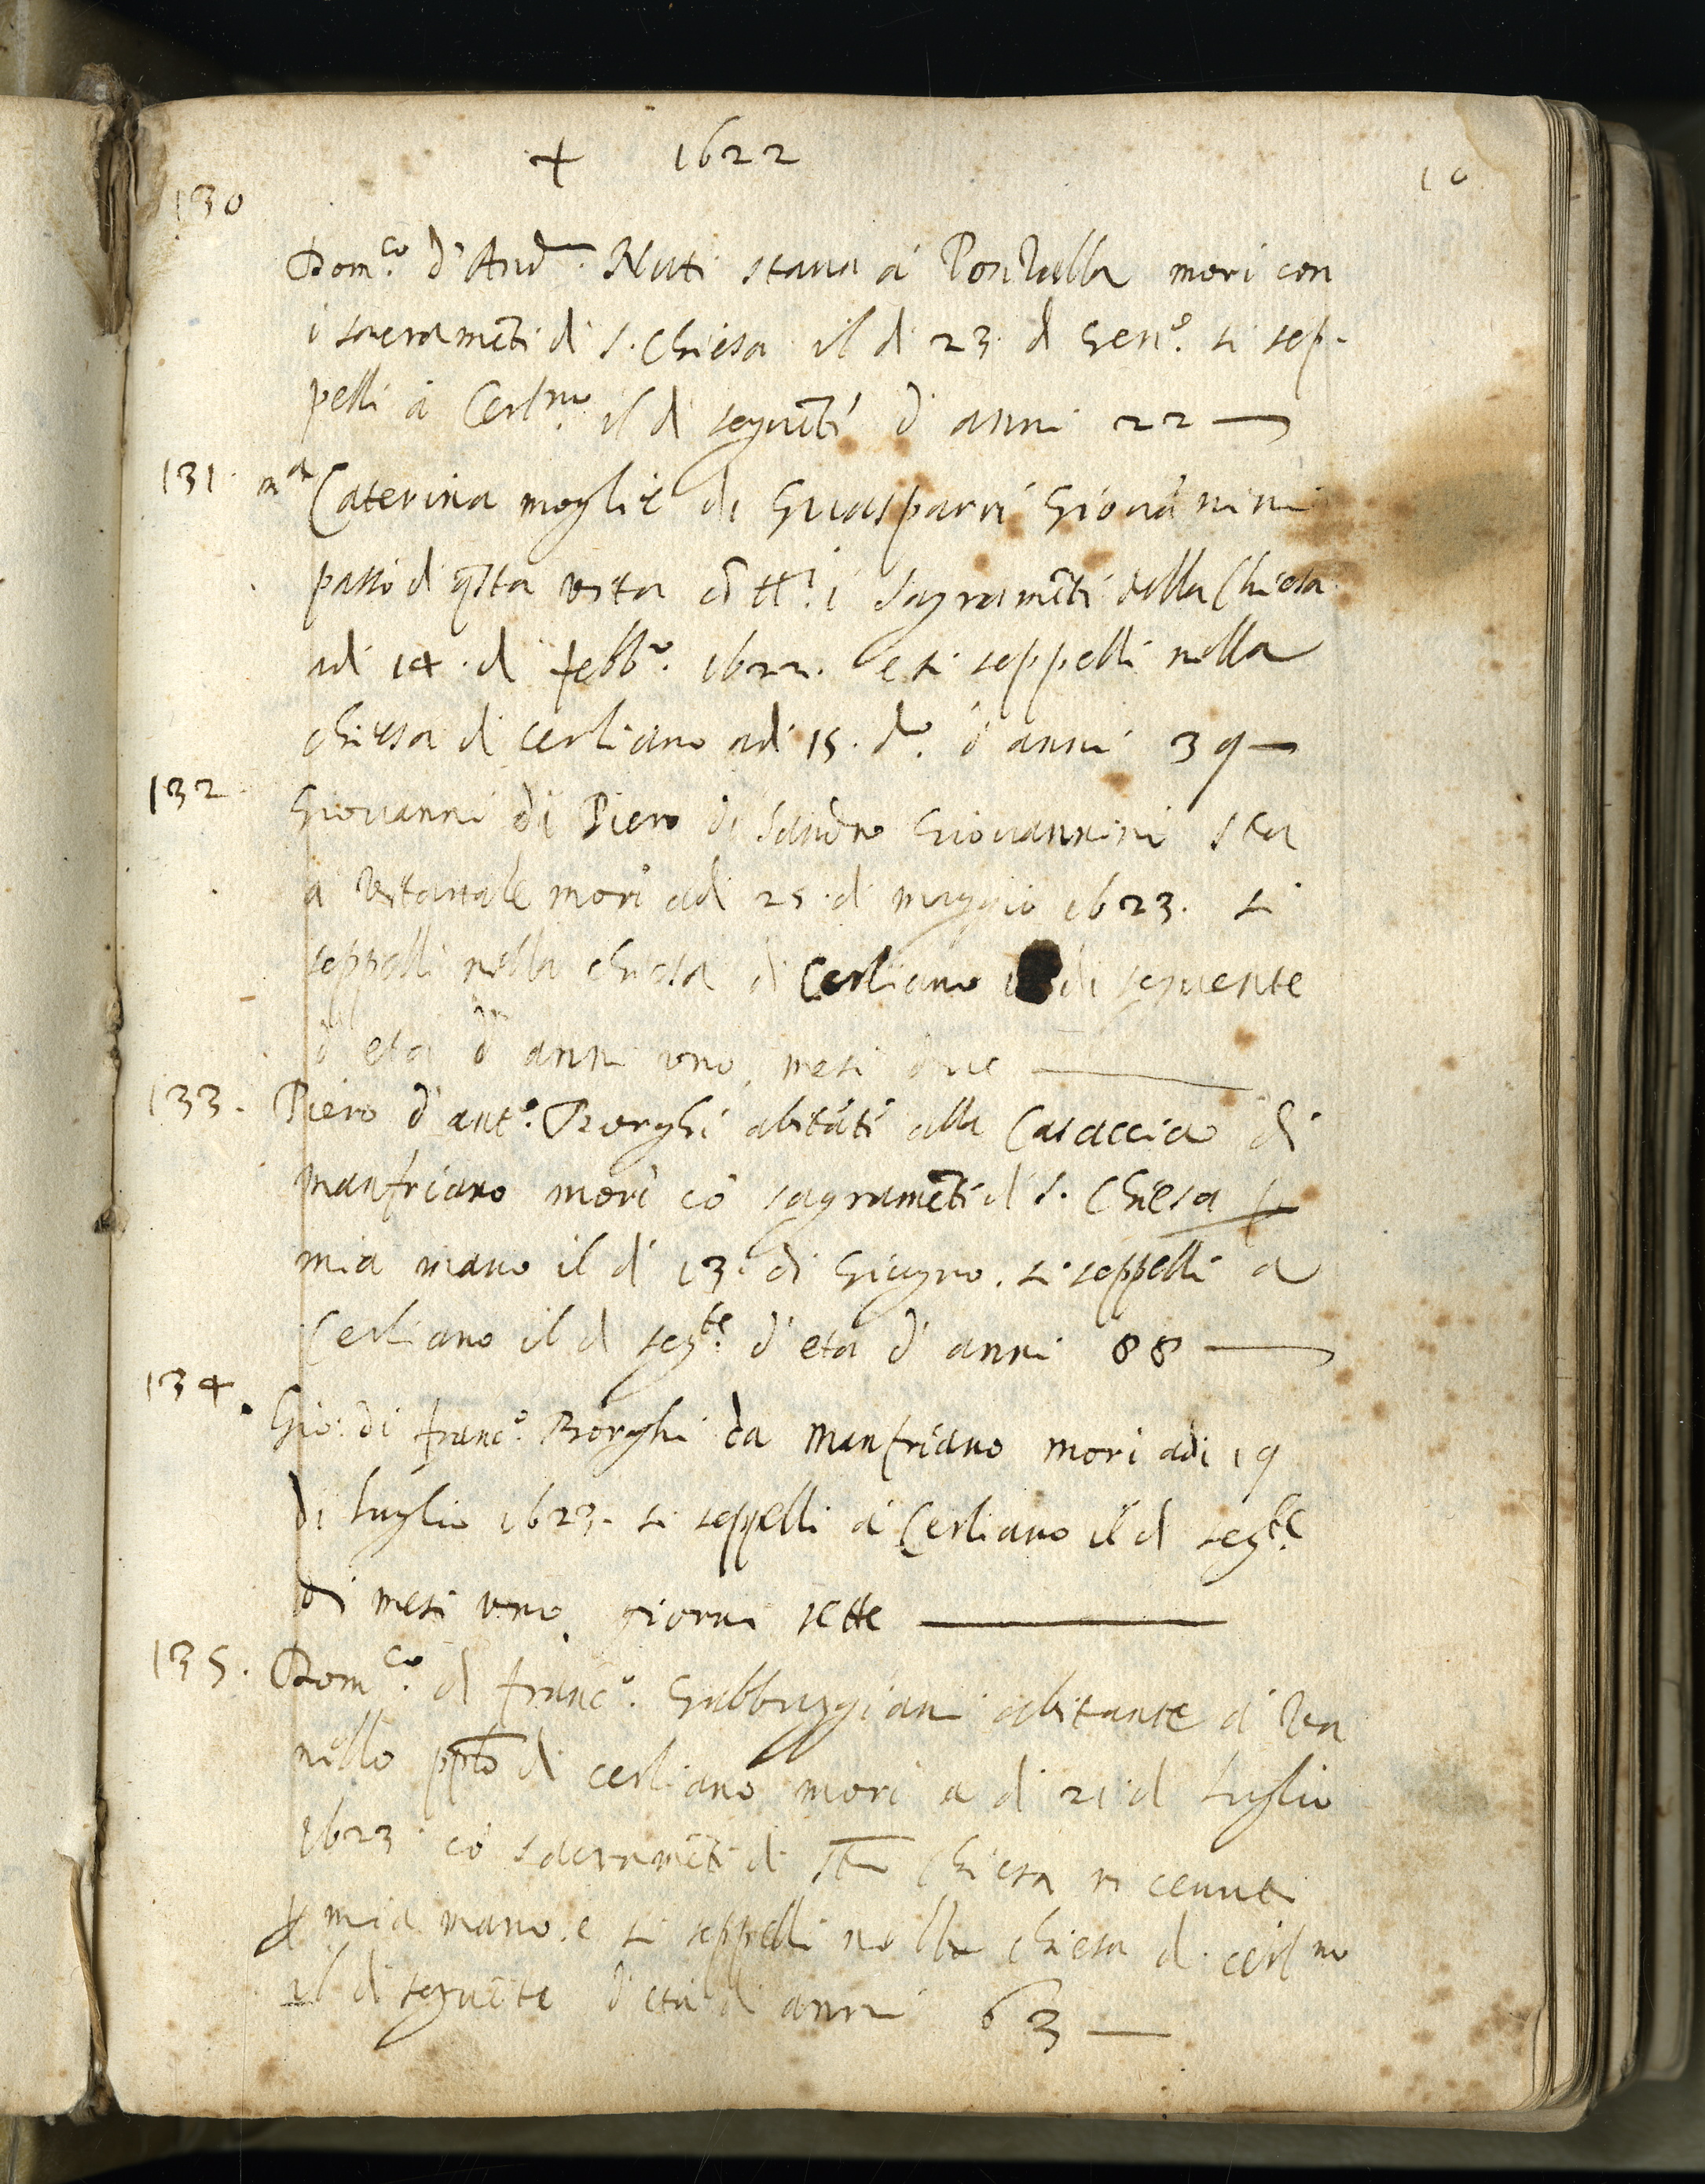 + 1622
10
130
Dom.co d'And.a Nuti staua à Pontalla mori con
i sacramẽti di S. Chiesa il di 23. d Gen.o si sep-
pelli à Cerl.no il di seguẽte d anni 22 —
131. m.a Caterina moglie di Guasparri Giouãnini
passò di q̃sta vita cõ tt.i i sagramẽti della Chiesa
adi 14. d febb.o 1622. e si seppelli nella
chiesa di cerliano adi 15. d.o d'anni 39 —
132. Giouanni di Piero di Sandro Giouannini sta
à mori adi 25. di maggio 1623. si
seppelli nella chiesa di Cerliano di seguente
d'eta d anni uno, mesi due —
133. Piero d'ant.o Borghi abitãti alla Casaccia di
manfriano mori cõ sagramẽti di S. Chiesa p
mia mano il di 13. di Giugno. si seppelli a
Cerliano il d seg.te d'eta d'anni 88 —
134. Gio: di franc.o Borghi da manfriano mori adi 19
di luglio 1623. si seppelli à Cerliano il d seg.te
di mesi uno, giorni sette —
135. Dom.co di franc.o Gabbuggiani abitante à
nello ppto di cerliano mori a di 21 d luglio
1623. cõ sacramẽti di Sta Chiesa riceuuti
p mia mano. e si seppelli nella chiesa d. cerl.no
il di seguẽte d'età di anni 63 —